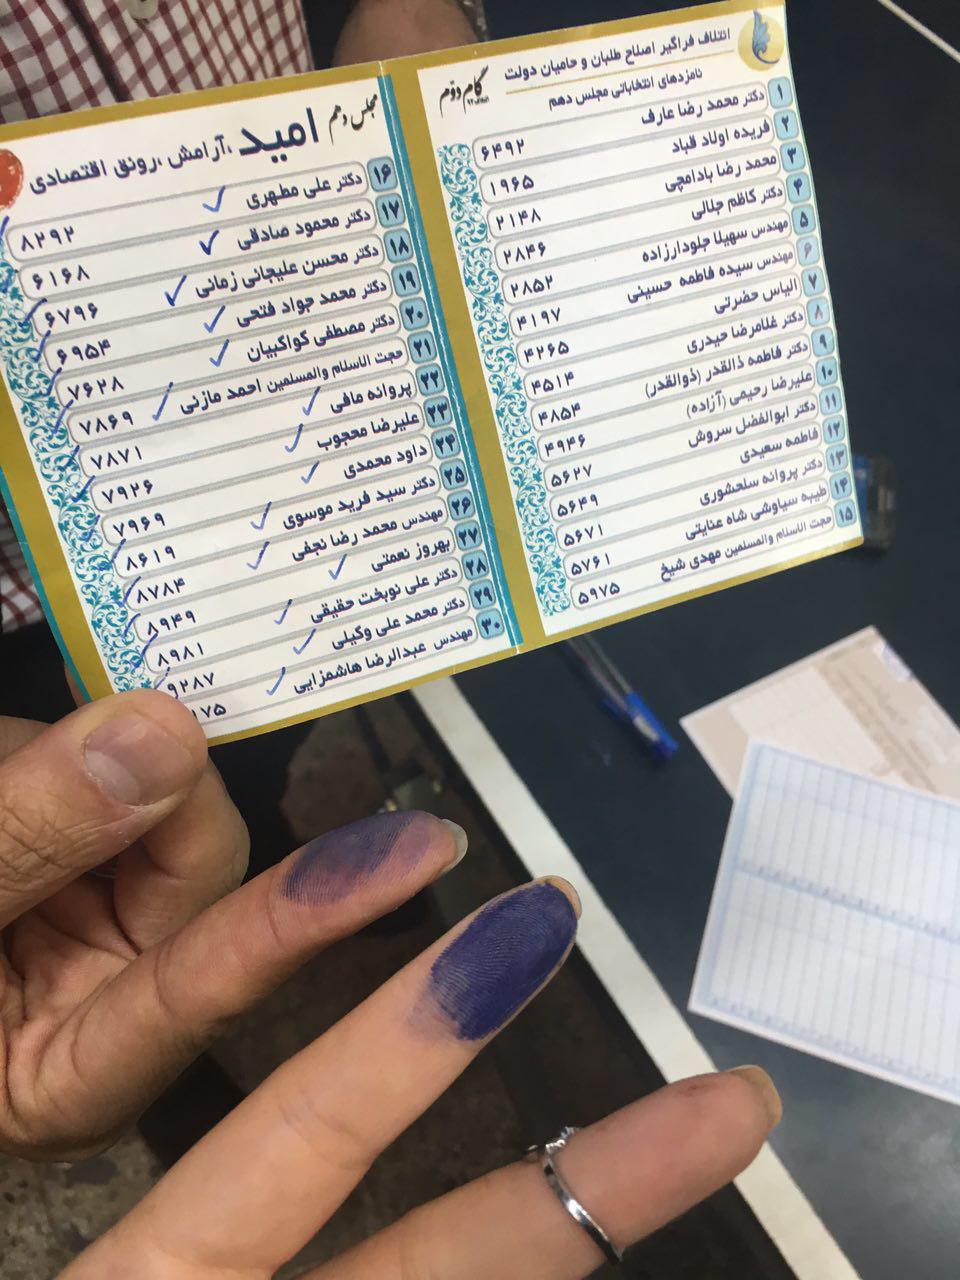 ائتلاف فراگیر اصلاح طلبان و حامیان دولت
نامزدهای انتخاباتی مجلس دهم
گام دوم
۱ دکتر محمد رضا عارف ۶۴۹۲
۲ فریده اولاد قباد ۱۹۶۵
۳ محمد رضا بادامچی ۲۱۴۸
۴ دکتر کاظم جلالی ۲۸۴۶
۵ مهندس سهیلا جلودارزاده ۲۸۵۲
۶ مهندس سیده فاطمه حسینی ۴۱۹۷
۷ الیاس حضرتی ۴۲۶۵
۸ دکتر غلامرضا حیدری ۴۵۱۴
۹ دکتر فاطمه ذالقدر (ذوالقدر) ۴۸۵۴
۱۰ علیرضا رحیمی (آزاده) ۴۹۴۶
۱۱ دکتر ابوالفضل سروش ۵۶۲۷
۱۲ فاطمه سعیدی ۵۶۴۹
۱۳ دکتر پروانه سلحشوری ۵۶۷۱
۱۴ طیبه سیاوشی شاه عنایتی ۵۷۶۱
۱۵ حجت الاسلام والمسلمین مهدی شیخ ۵۹۷۵
مجلس دهم
امید ،آرامش ،رونق اقتصادی
۱۶ دکتر علی مطهری ۸۲۹۲
۱۷ دکتر محمود صادقی ۶۱۶۸
۱۸ دکتر محسن علیجانی زمانی ۶۷۹۶
۱۹ دکتر محمد جواد فتحی ۶۹۵۴
۲۰ دکتر مصطفی کواکبیان ۷۶۲۸
۲۱ حجت الاسلام والمسلمین احمد مازنی ۷۸۶۹
۲۲ پروانه مافی ۷۸۷۱
۲۳ علیرضا محجوب ۷۹۲۶
۲۴ داود محمدی ۷۹۶۹
۲۵ دکتر سید فرید موسوی ۸۶۱۹
۲۶ مهندس محمد رضا نجفی ۸۷۸۴
۲۷ بهروز نعمتی ۸۹۴۹
۲۸ دکتر علی نوبخت حقیقی ۸۹۸۱
۲۹ دکتر محمد علی وکیلی ۹۲۸۷
۳۰ مهندس عبدالرضا هاشمزایی ۱۷۵